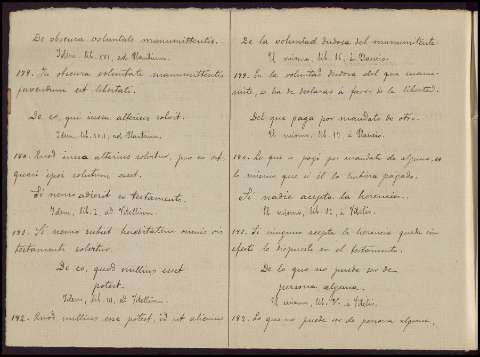 De obscura voluntate manumittentis.
Idem, lib. XVI, ad Plautium.
179. In obscura voluntate manumittentis
favendum est libertati.
De eo, quod jussu alterius solvit.
Idem, lib. XVII, ad Plautium.
180. Quod jussu alterius solvitur, pro eo est,
quasi ipsi solutum esset.
Si nemo adierit ex testamento.
Idem, lib. I, ad Vitellium.
181. Si nemo subiit hereditatem omnis vis
testamenti solvitur.
De eo, quod nullius esse
potest.
Idem, lib. III, ad Vitellium.
182. Quod nullius esse potest, id ut alicuius
De la voluntad dudosa del manumitente
El mismo, lib. 16, à Plaucio.
179. En la voluntad dudosa del que manu-
mite, se ha de declarar à favor de la libertad.
Del que paga por mandato de otro.
El mismo, lib. 17, à Plaucio.
180. Lo que se pagó por mandato de alguno, es
lo mismo que si él lo hubiera pagado.
Si nadie acepta la herencia.
El mismo, lib. 1º, à Vitelio.
181. Si ninguno acepta la herencia queda sin
efecto lo dispuesto en el testamento.
De lo que no puede ser de
persona alguna.
El mismo, lib. à Vitelio.
182. Lo que no puede ser de persona alguna,